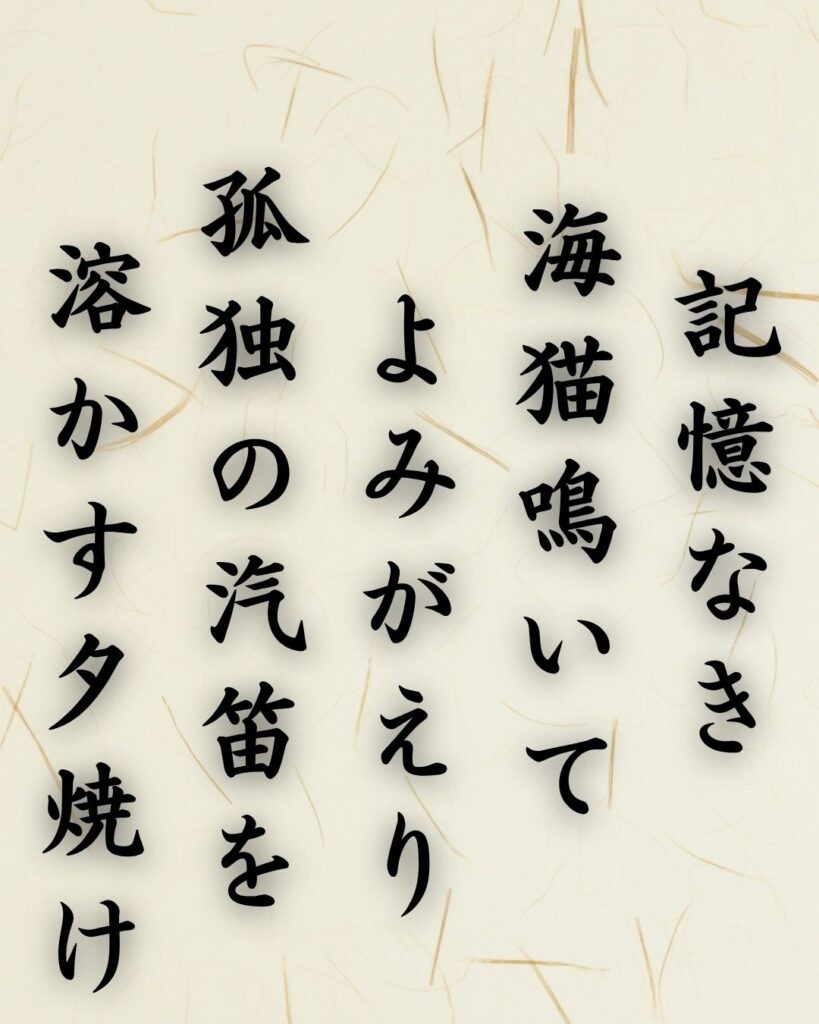 記憶なき
海猫鳴いて
よみがえり
孤独の汽笛を
溶かす夕焼け